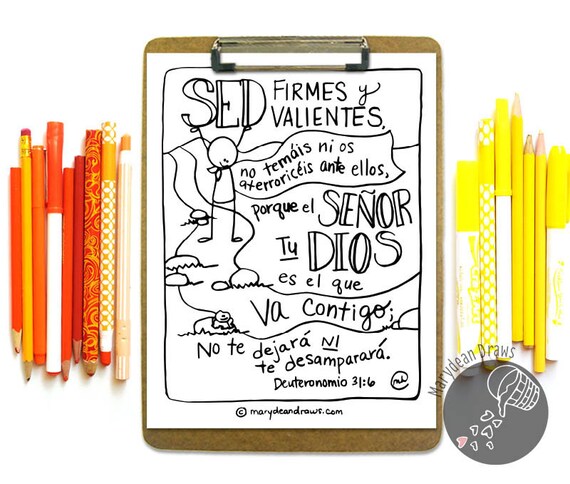 SED FIRMES y
VALIENTES,
no temáis ni os
aterroricéis ante ellos,
porque el SEÑOR
Tu DIOS
es el que
Va contigo;
No te dejará NI
te desamparará.
Deuteronomio 31:6
© marydeandraws.com
Marydean Draws